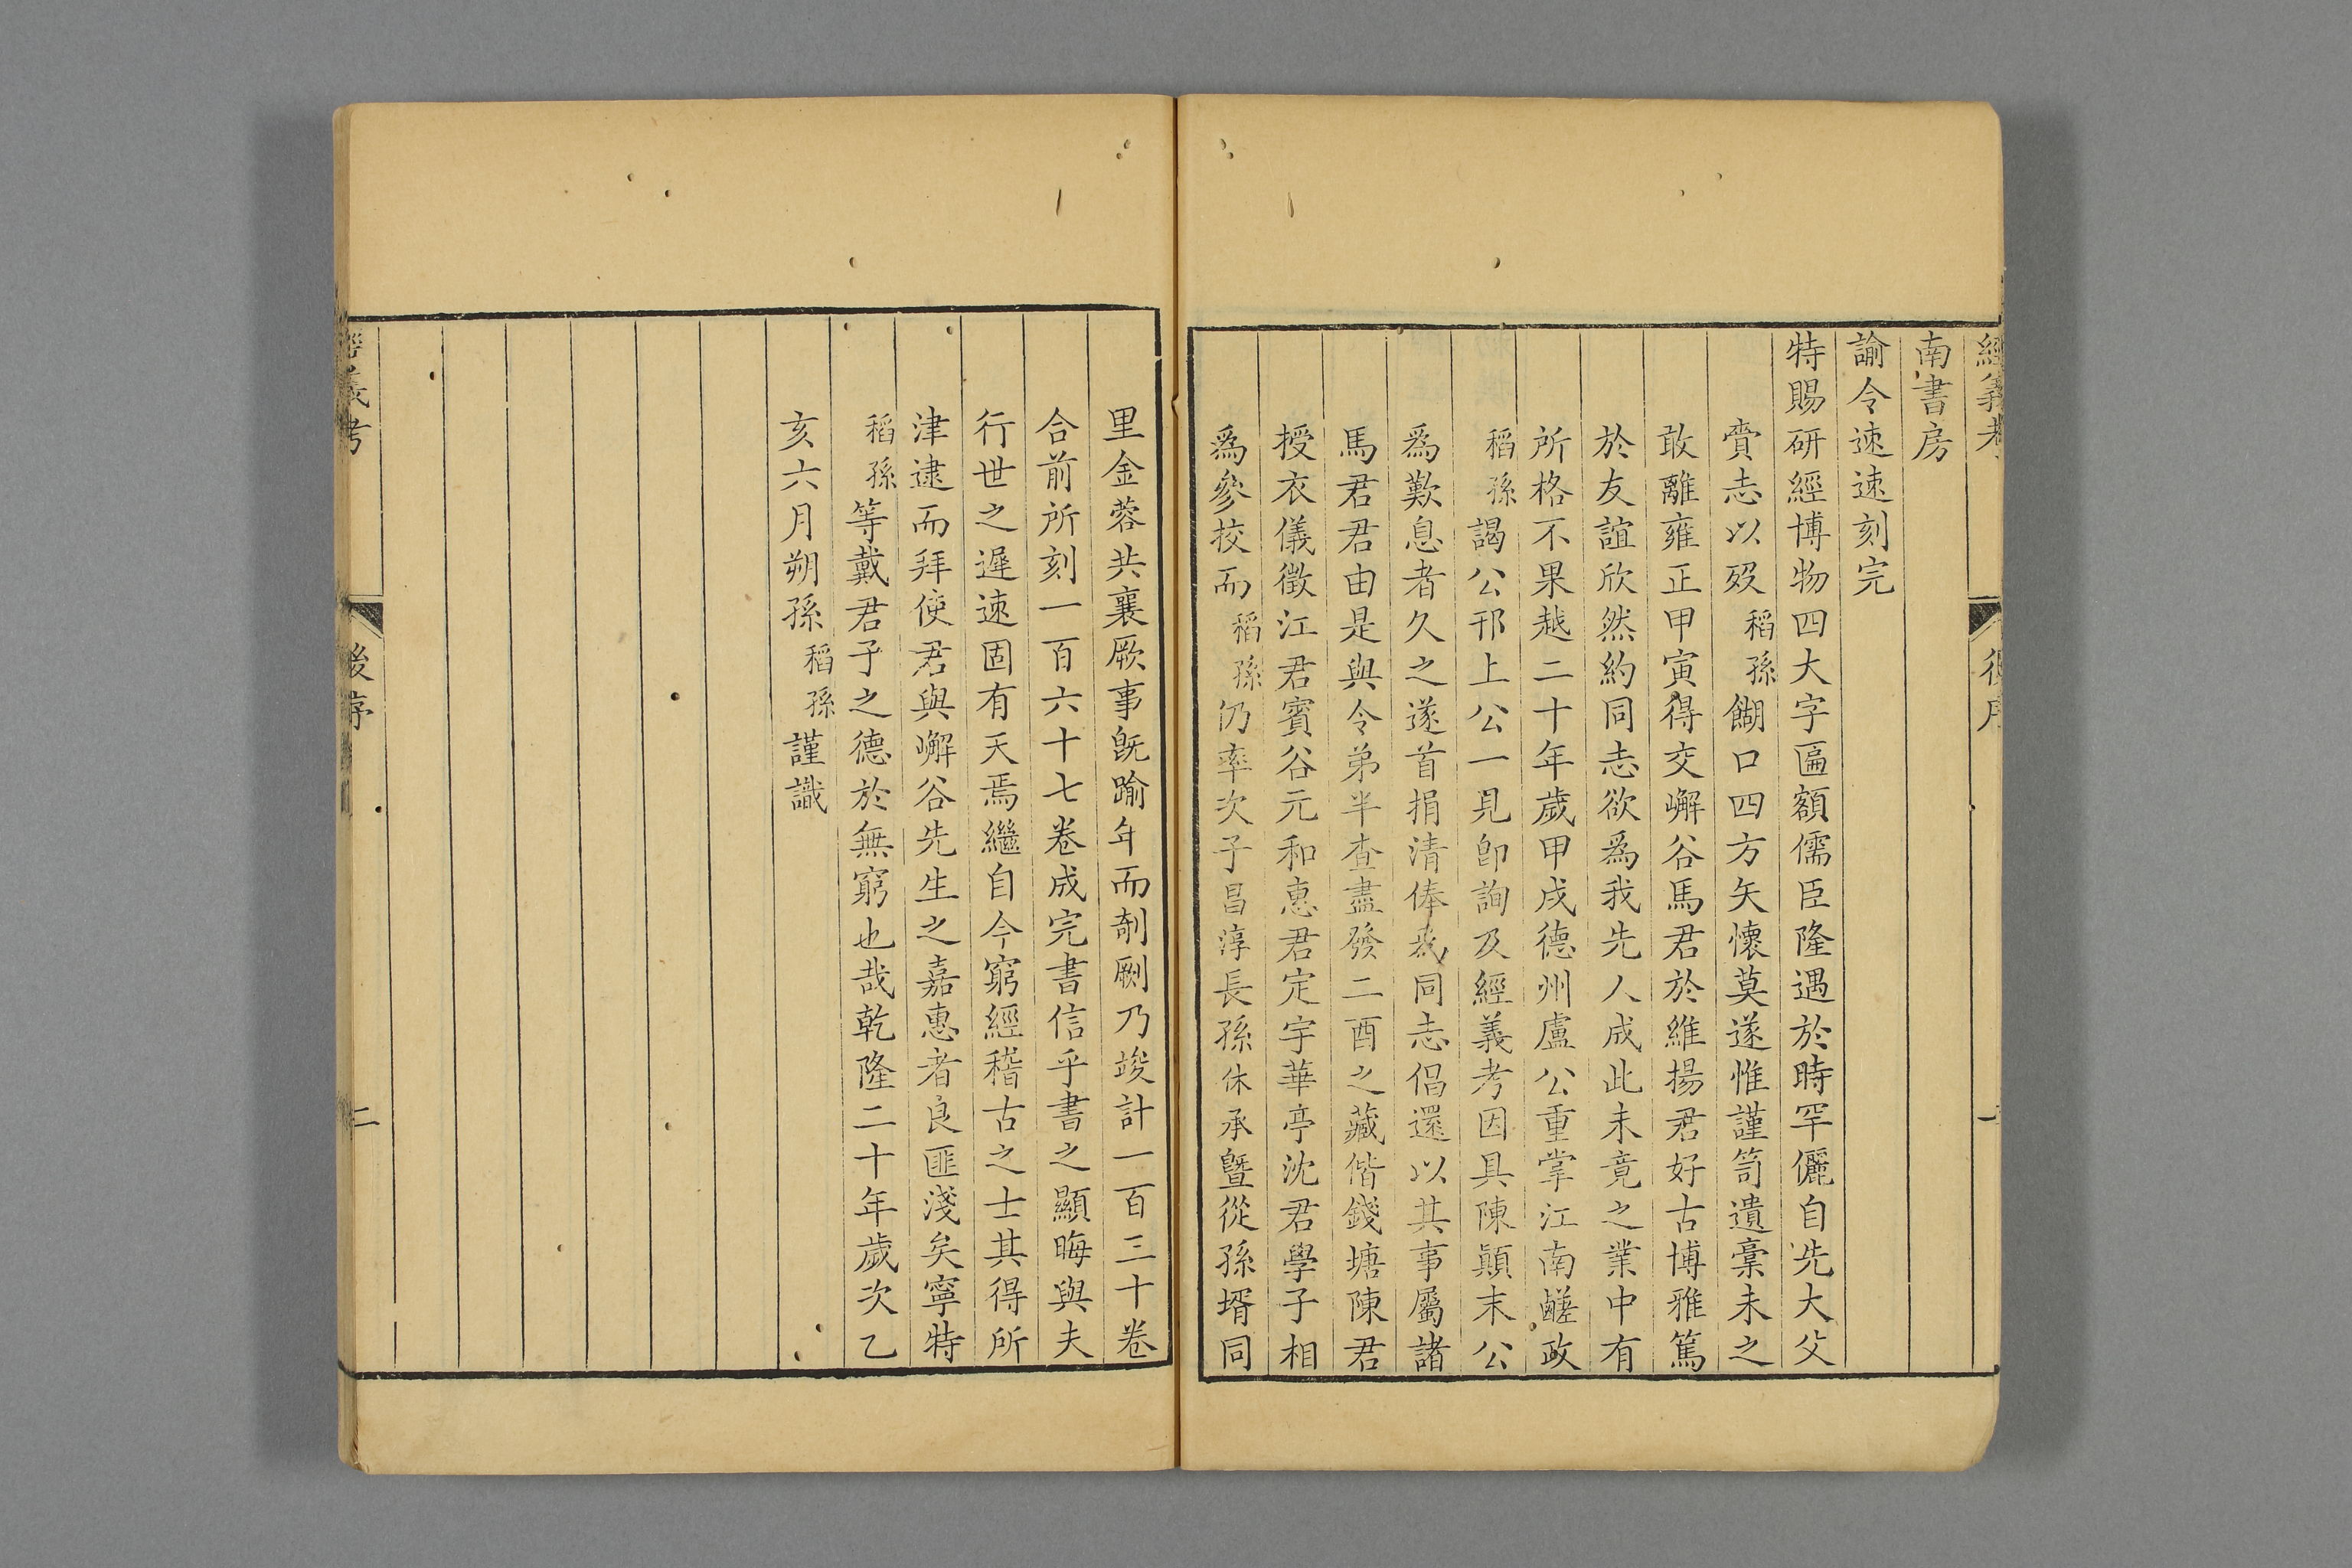 經義考 後序 一
南書房
諭令速速刻完
特賜研經博物四大字匾額儒臣隆遇於時罕儷自先大父
賫志以歿稻孫餬口四方矢懷莫遂惟謹笥遺稾未之
敢離雍正甲寅得交嶰谷馬君於維揚君好古博雅篤
於友誼欣然約同志欲爲我先人成此未竟之業中有
所格不果越二十年歲甲戌德州盧公重掌江南鹺政
稻孫謁公邗上公一見卽詢及經義考因具陳顚末公
爲歎息者久之遂首捐淸俸爲同志倡還以其事屬諸
馬君君由是與令弟半查盡發二酉之藏偕錢塘陳君
授衣儀徵江君賓谷元和惠君定宇華亭沈君學子相
爲參挍而稻孫仍率次子昌淳長孫休承曁從孫壻同
里金蓉共襄厥事旣踰年而剞劂乃竣計一百三十卷
合前所刻一百六十七卷成完書信乎書之顯晦與夫
行世之遲速固有天焉繼自今窮經稽古之士其得所
津逮而拜使君與嶰谷先生之嘉惠者良匪淺矣寧特
稻孫等戴君子之德於無窮也哉乾隆二十年歲次乙
亥六月朔孫稻孫謹識
經義考 後序 二